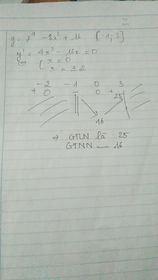 y = x⁴ - 8x² + 16 [-1; 3]
y' = 4x³ - 16x = 0
x = 0
x = ±2
-2 -1 0 3
+ 0 - 0 +
25
16
=> GTLN là 25
GTNN 16